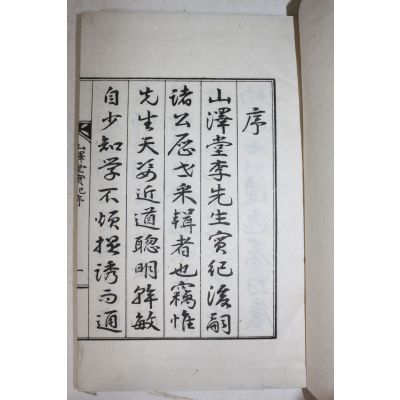 序
山澤堂李先生實紀後嗣
諸公歷世采輯者也竊惟
先生天姿近道聰明幹敏
自少知学不煩提誘而通
山澤堂實紀序
一